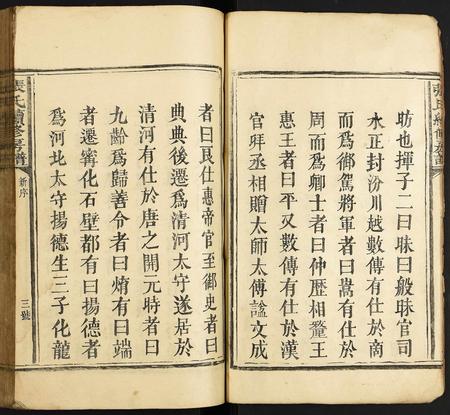 昉也揮子二曰昧曰般昧官司
水正封汾川越數傳有仕於商
而爲鄉駕將軍者曰嵩有仕於
周而爲卿士者曰仲歷相釐王
惠王者曰平又數傳有仕於漢
官拜丞相贈太師太傅諡文成
張氏續修房譜
者曰艮仕惠帝官至御史者曰
典典後遷爲清河太守遂居於
清河有仕於唐之開元時者曰
九齡爲歸善令者曰熵有曰端
者遷寧化石壁都有曰揚德者
爲河北太守揚德生三子化龍
張氏續修房譜
新序
三號